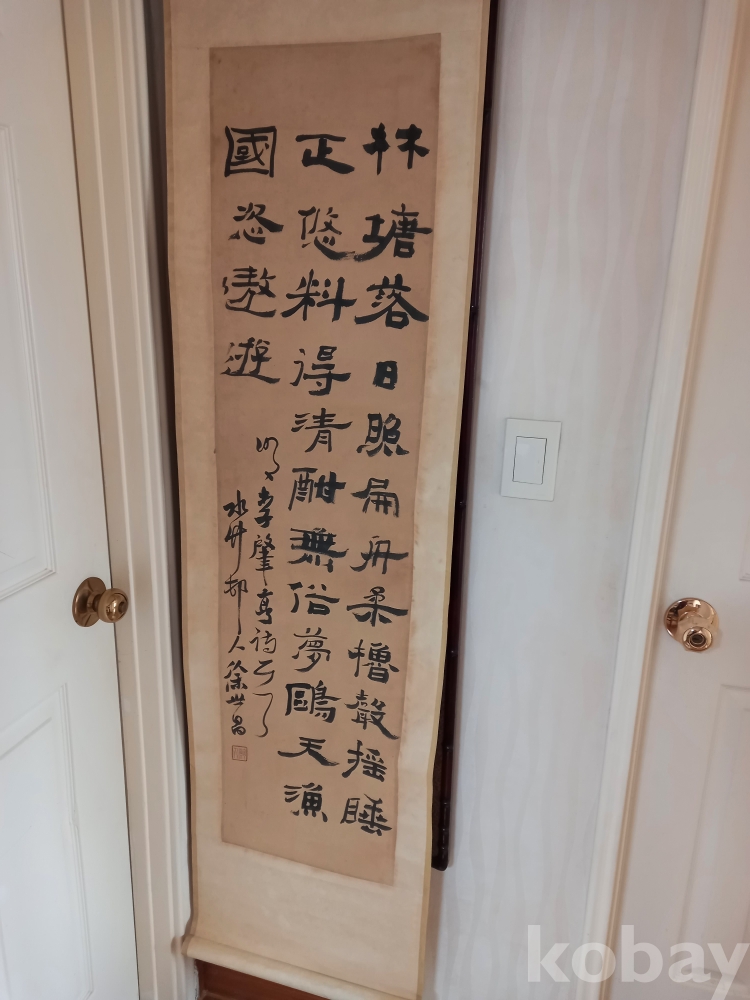 林塘落日照扁舟柔櫓聲搖睡
正悠料得清酣無俗夢鷗天漁
國恣遨遊
明人李肇亨詩
水竹邨人徐世昌
kobay